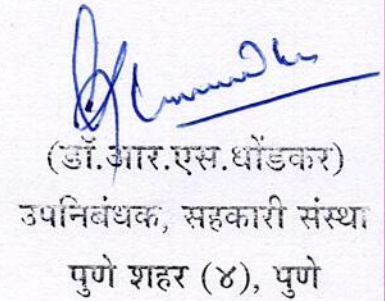 (डॉ.आर.एस.धोंडकर)
उपनिबंधक, सहकारी संस्था
पुणे शहर (४), पुणे